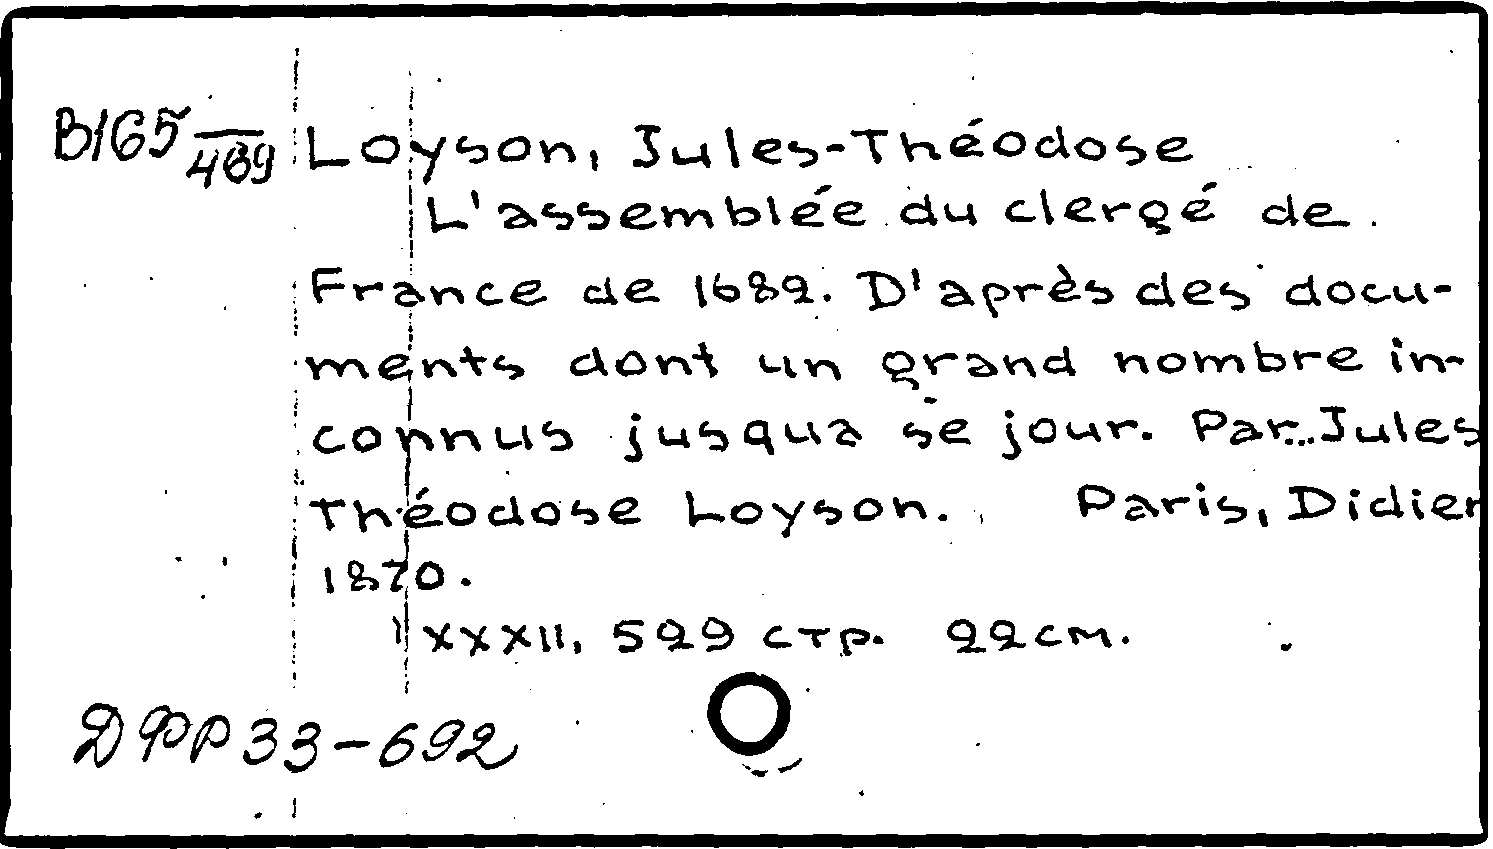 B165/469 Loyson, Jules-Théodose
L'assemblée du clergé de
France de 1682. D'après des docu-
ments dont un grand nombre in-
connus jusqua se jour. Par...Jules
Théodose Loyson. Paris, Didier
1870.
XXXII, 529 стр. 22 см.
ДФР 33-692